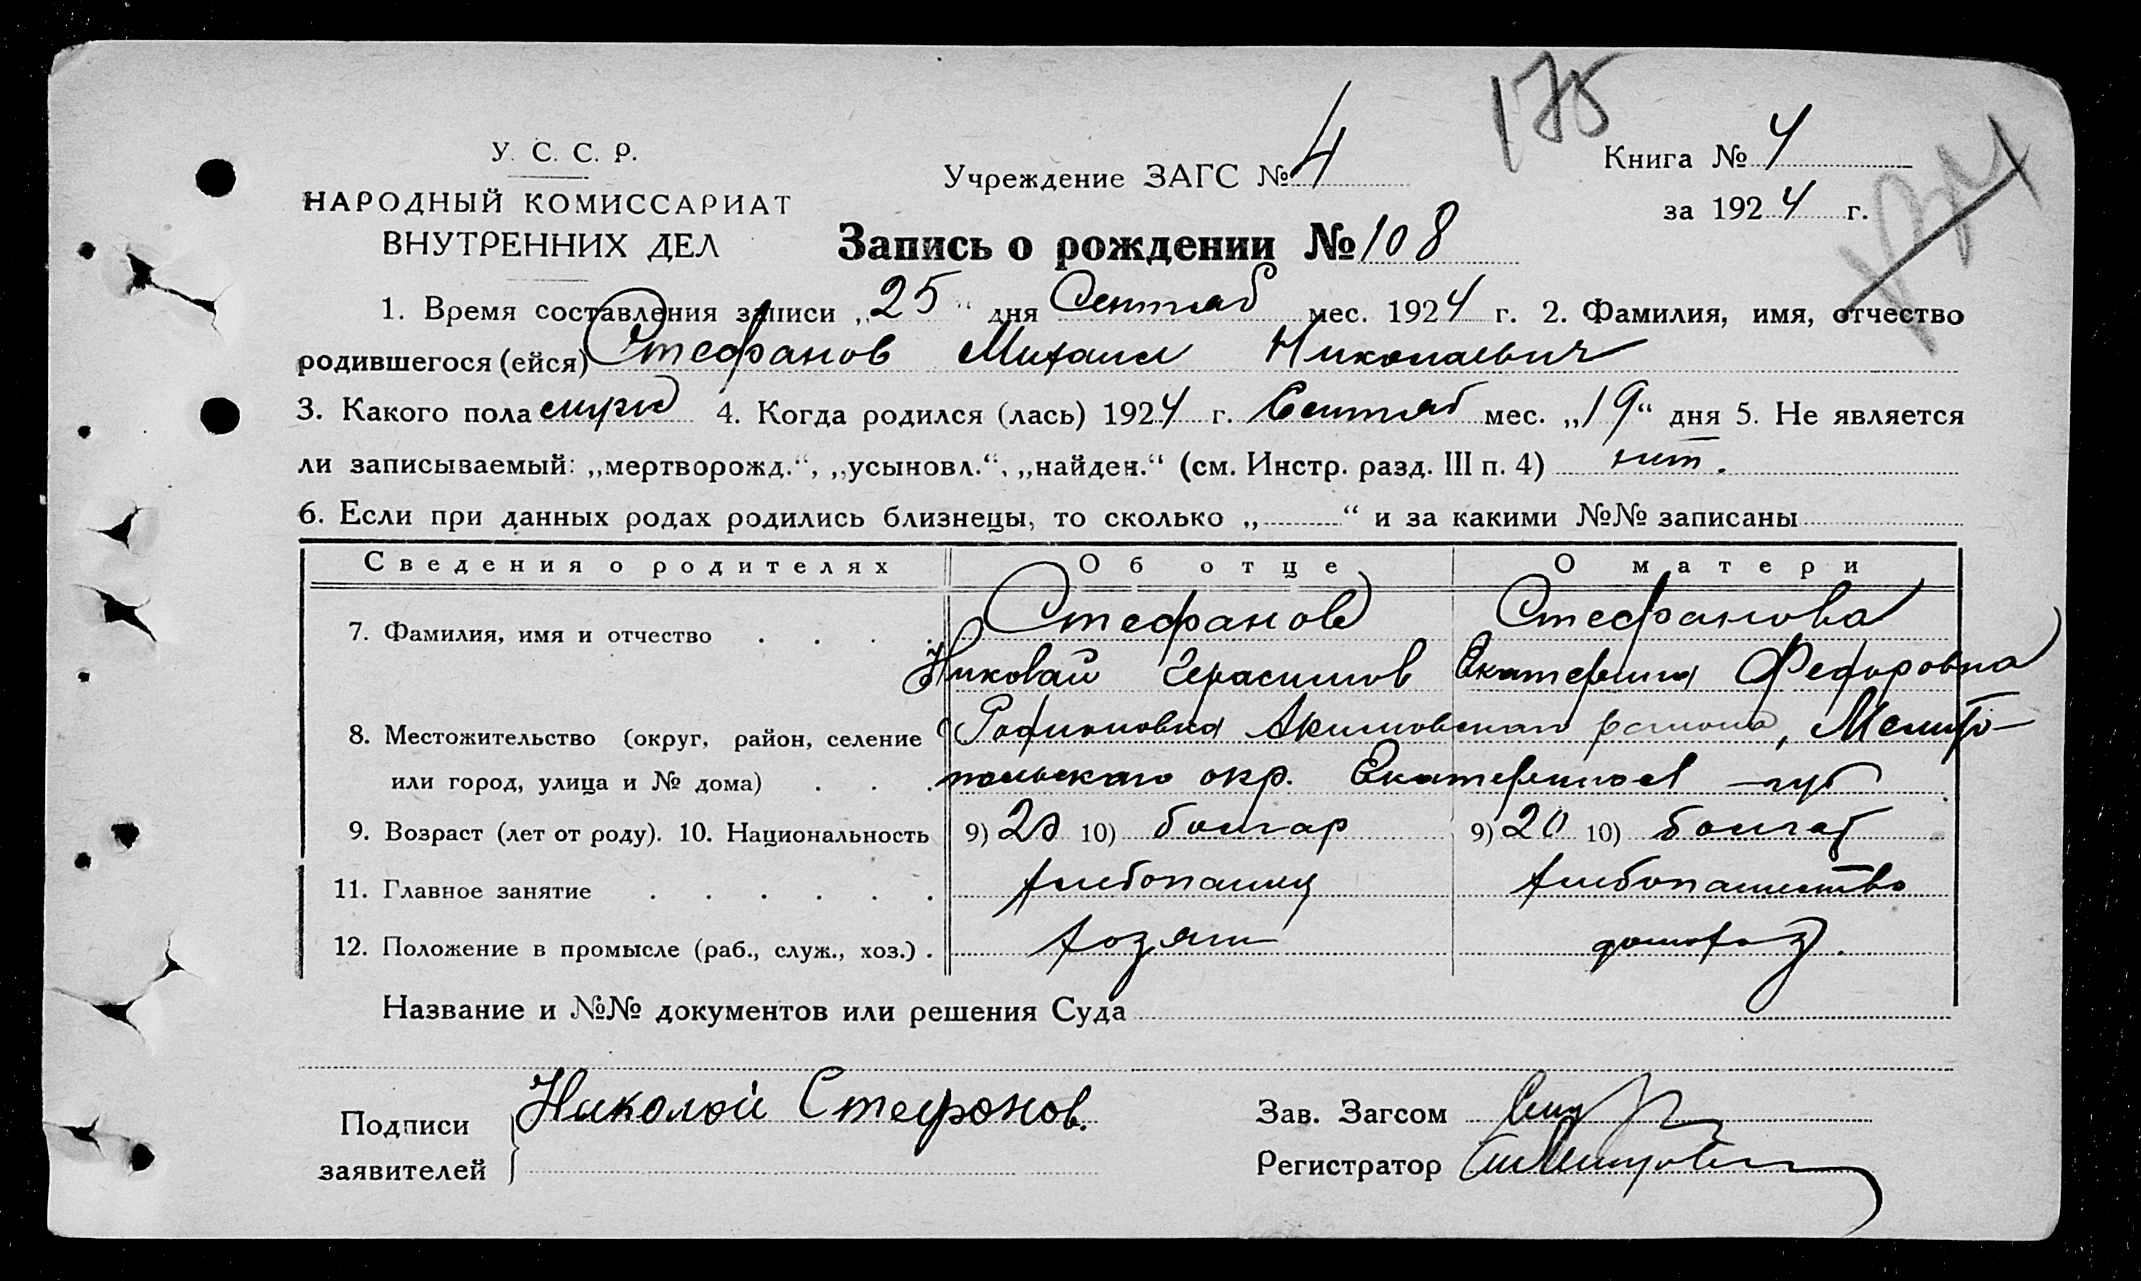 175
У. С. С. Р.
Учреждение ЗАГС № 4
Книга № 4
НАРОДНЫЙ КОМИССАРИАТ
за 1924 г.
ВНУТРЕННИХ ДЕЛ
Запись о рождении № 108
1. Время составления записи „25“ дня Сентяб мес. 1924 г. 2. Фамилия, имя, отчество
родившегося (ейся) Стефанов Михаил Николаевич
3. Какого пола 4. Когда родился (лась) 1924 г. Сентяб мес. „19“ дня 5. Не является
ли записываемый: „мертворожд.“, „усыновл.“, „найден.“ (см. Инстр. разд. III п. 4) нет.
6. Если при данных родах родились близнецы, то сколько „ “ и за какими №№ записаны
Сведения о родителях Об отце О матери
7. Фамилия, имя и отчество Стефанов Стефанова
Николай Герасимов Екатерина Федоровна
8. Местожительство (округ, район, селение Радионовка Акимовскаго района, Мелито-
или город, улица и № дома) польскаго окр. Екатериносл губ
9. Возраст (лет от роду). 10. Национальность 9) 10) болгар 9) 20 10) болгар
11. Главное занятие хлебопашец хлебопашество
12. Положение в промысле (раб., служ., хоз.) хозяин домохоз.
Название и №№ документов или решения Суда
Подписи Николай Стефонов. Зав. Загсом
заявителей Регистратор